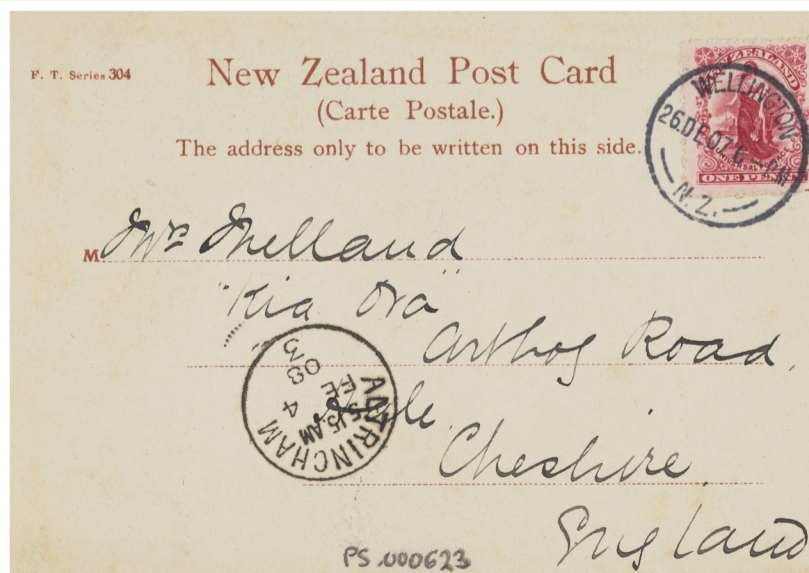 F. T. Series 304
New Zealand Post Card
(Carte Postale.)
The address only to be written on this side.
ZEALAND
UNIVERSAL POSTAGE
ONE PENNY
WELLINGTON
26.DE.07.6-PM
N.Z.
M. Mrs Melland
"Kia Ora"
Arthog Road,
Hale.
Cheshire,
England
ALTRINCHAM
5.15 AM
FE 4
08
PS.000623